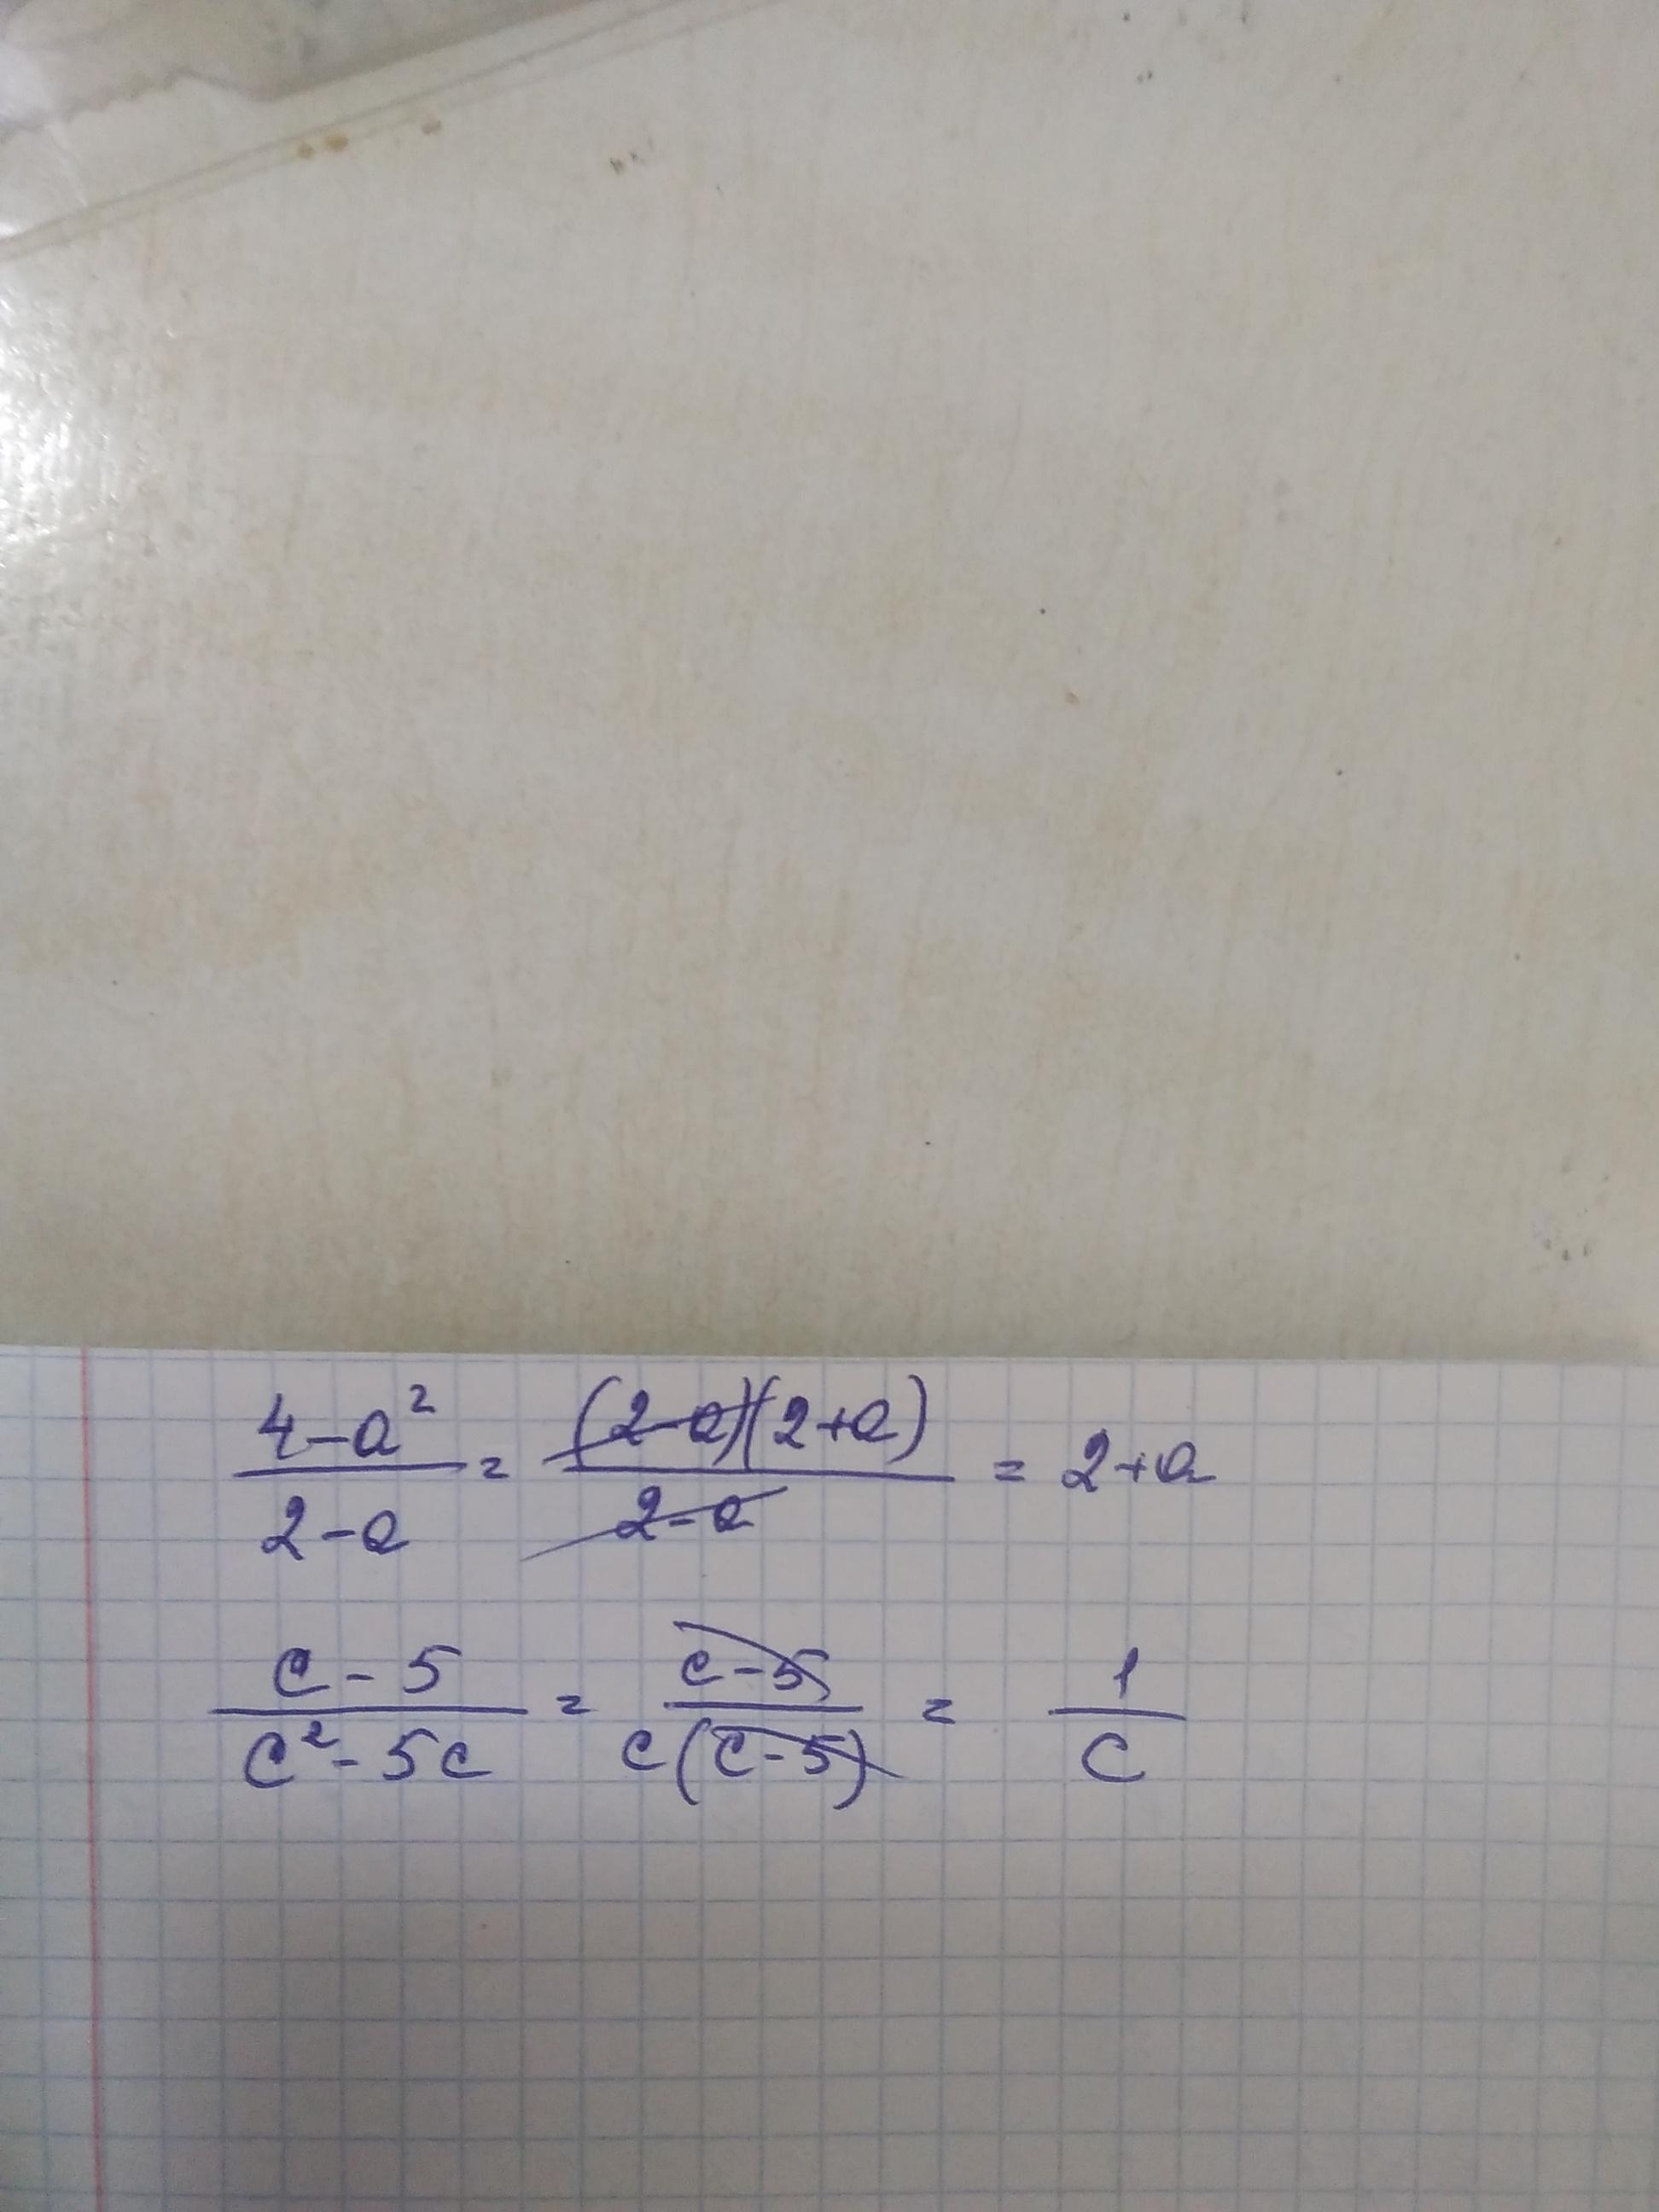 4-a²/2-a = (2-a)(2+a)/2-a = 2+a
c-5/c²-5c = c-5/c(c-5) = 1/c